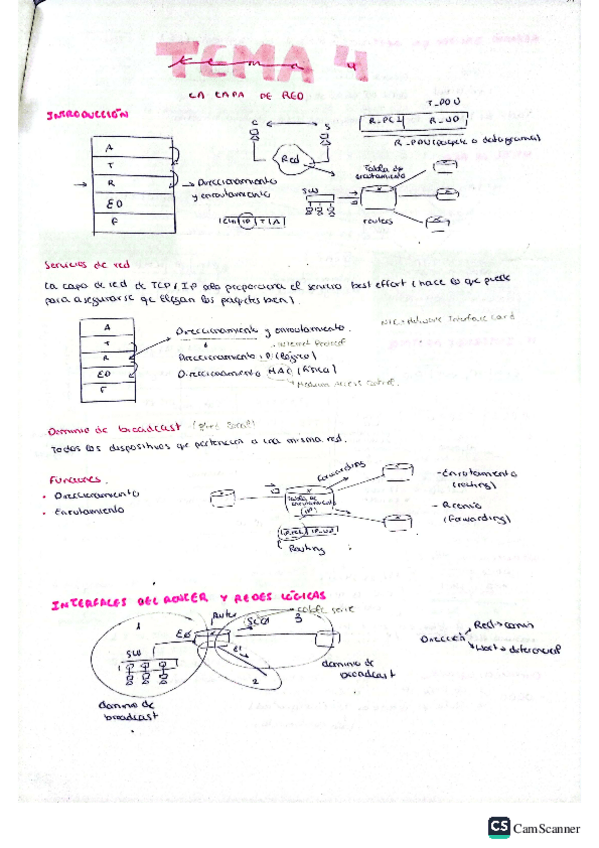 TEMA 4
tema 4
LA CAPA DE RED
INTRODUCCIÓN
A
T
R
F
Direccionamiento
y enrutamiento
C
S
Red
T_PDU
R_PCI
R_UD
SW
Tabla de
enrutamiento
routers
IP
T
A
Servicios de red
La capa de red de TCP/IP solo proporciona el servicio best effort (hace lo que puede
para asegurarse que llegan los paquetes bien).
A
T
R
F
Direccionamiento y enrutamiento.
Internet Protocol
Direccionamiento IP (lógico)
Direccionamiento MAC (física)
Medium Access Control.
NIC: Network Interface Card
Dominio de broadcast
Todos los dispositivos que pertenecen a una misma red.
Funciones.
• Direccionamiento
• Enrutamiento
Forwarding
Tabla de
enrutamiento
(IP)
Routing
- Enrutamiento
(routing)
(Forwarding)
INTERFACES DEL ROUTER Y REDES LÓGICAS
1
SW
E0
E1
2
3
dominio de
broadcast
dominio de
broadcast
Dirección
Red → común
Host → diferencial
CS CamScanner